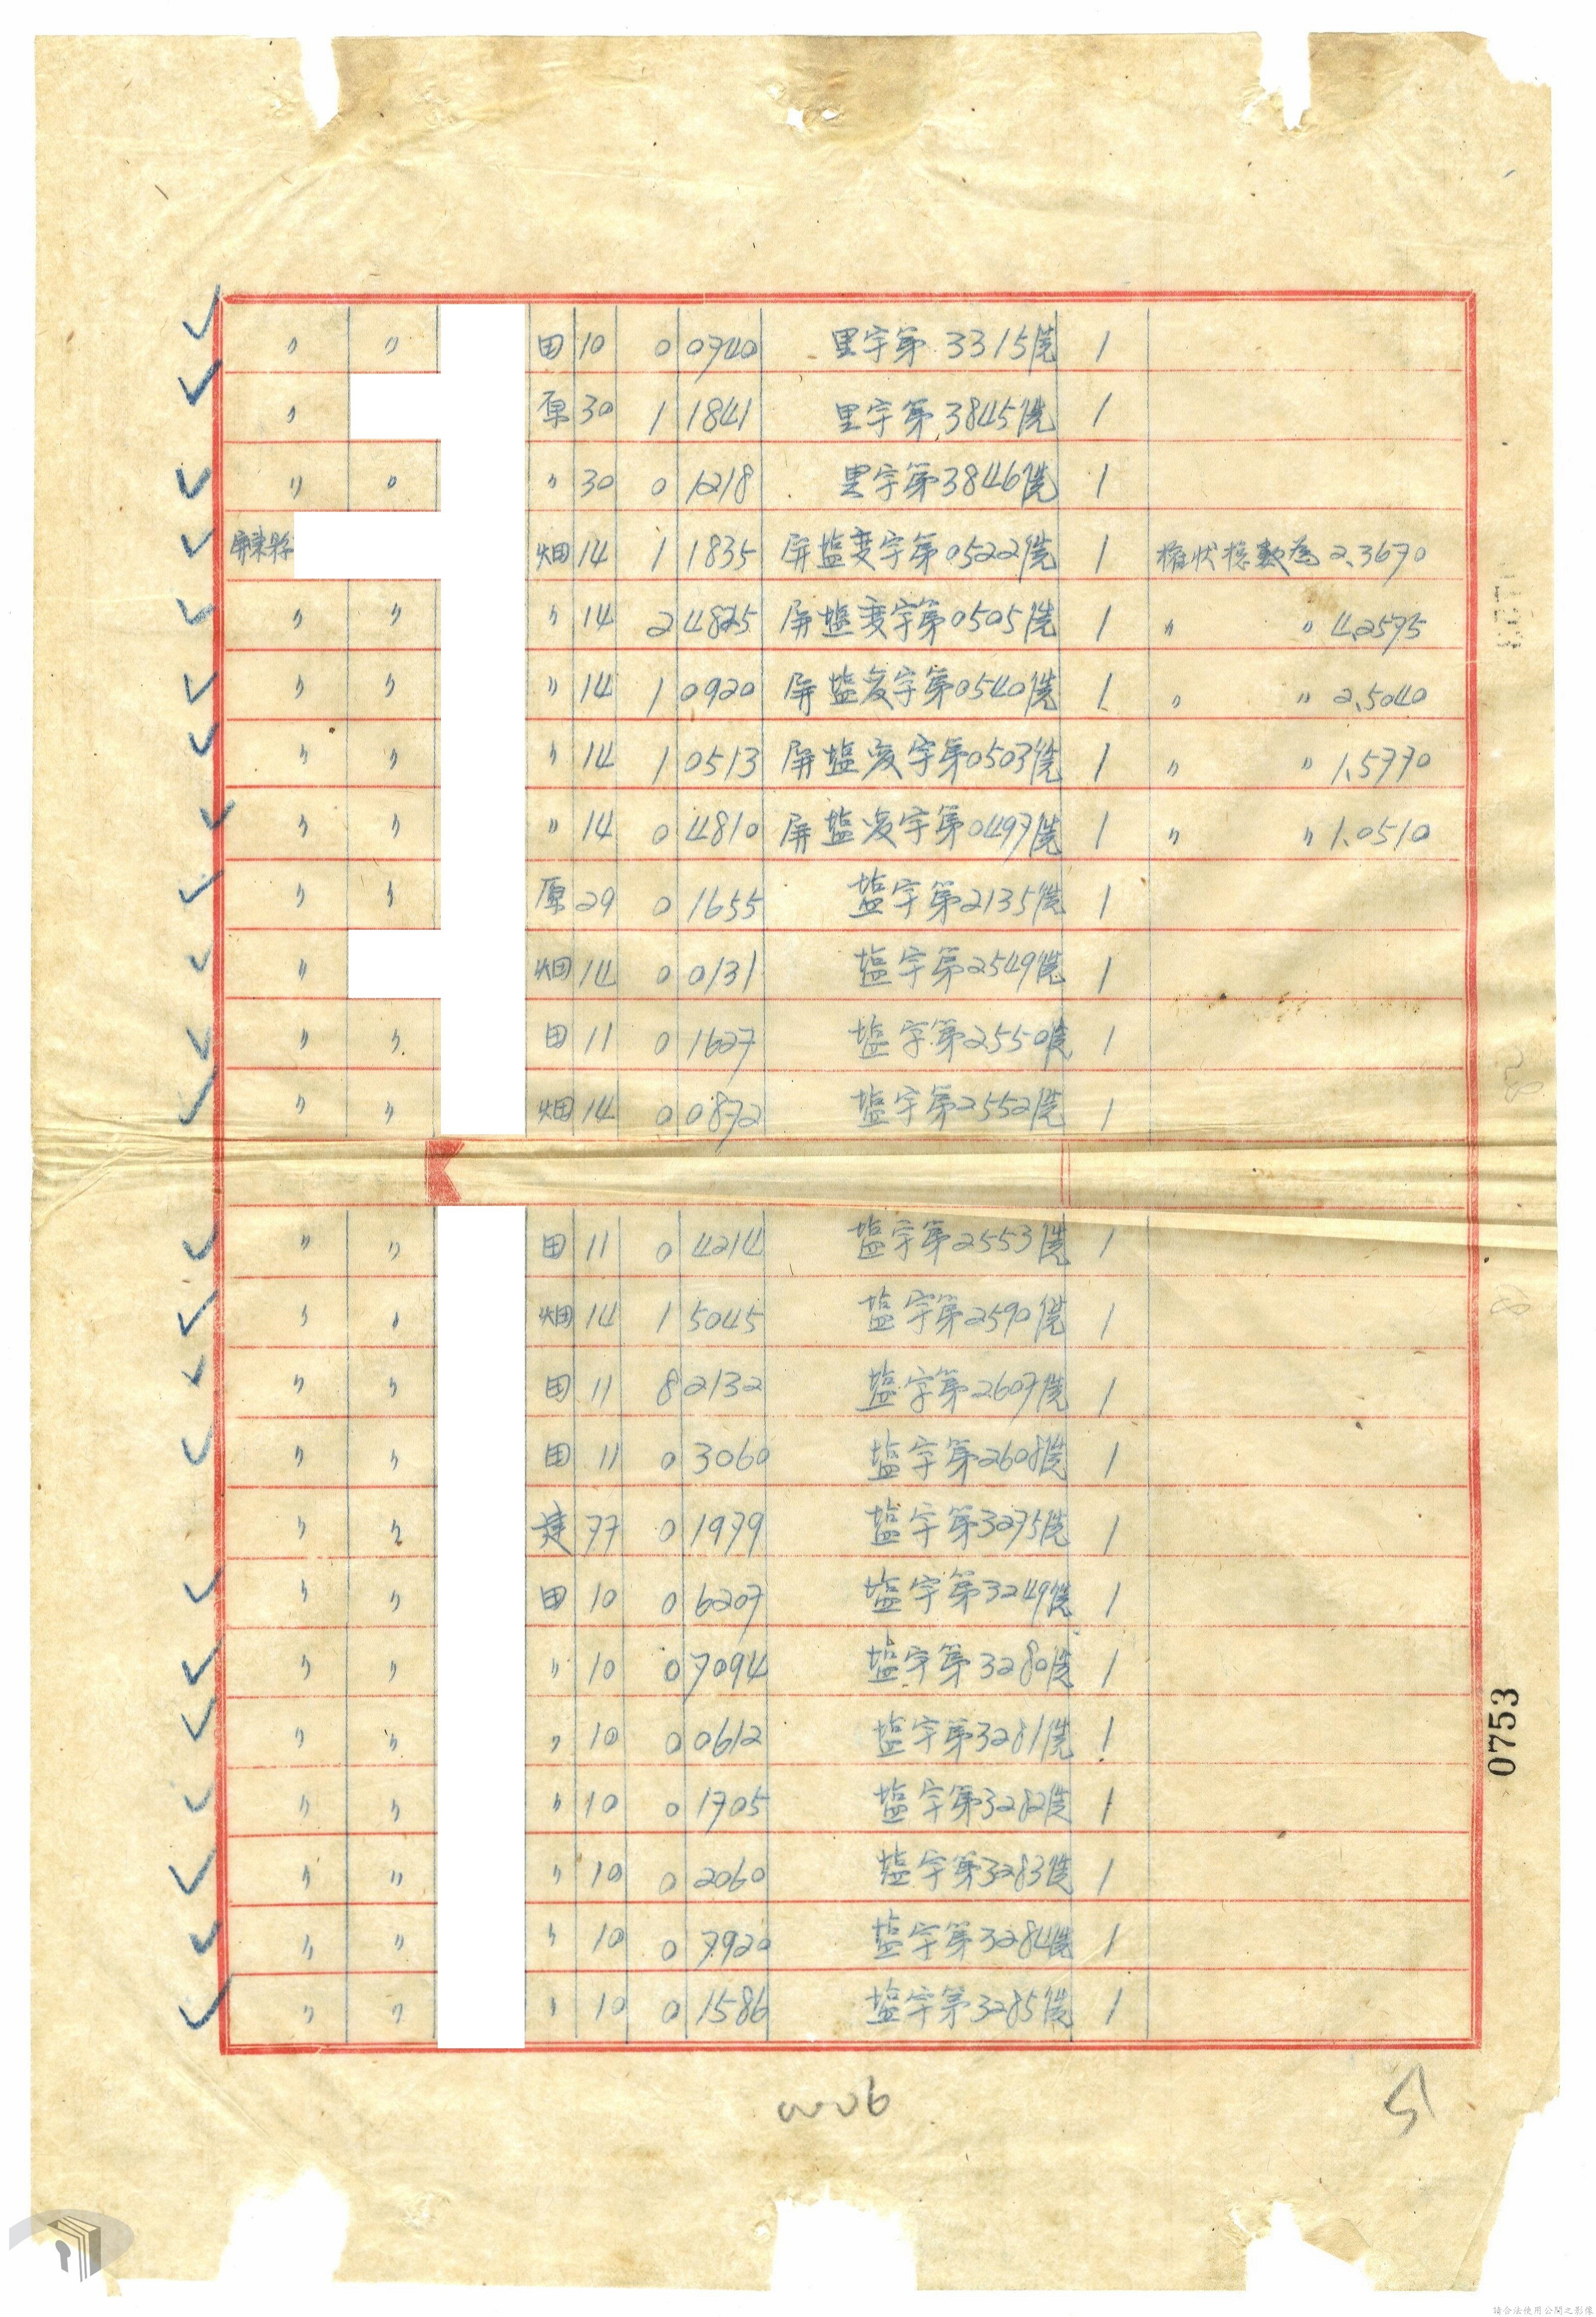 〃 〃 田 10 0 0740 里字第3315號 1
〃 原 30 1 1841 里字第3845號 1
〃 〃 〃 30 0 1218 里字第3846號 1
屏東縣 畑 14 1 1835 屏塩變字第0522號 1 權狀總數為 2.3670
〃 〃 〃 14 2 4825 屏塩變字第0505號 1 〃 〃 4.2575
〃 〃 〃 14 1 0920 屏塩變字第0540號 1 〃 〃 2.5040
〃 〃 〃 14 1 0513 屏塩變字第0503號 1 〃 〃 1.5770
〃 〃 〃 14 0 4810 屏塩變字第0497號 1 〃 〃 1.0510
〃 〃 原 29 0 1655 塩字第2135號 1
〃 畑 14 0 0131 塩字第2549號 1
〃 〃 田 11 0 1627 塩字第2550號 1
〃 〃 畑 14 0 0872 塩字第2552號 1
〃 〃 田 11 0 4214 塩字第2553號 1
〃 〃 畑 14 1 5045 塩字第2590號 1
〃 〃 田 11 8 2132 塩字第2607號 1
〃 〃 田 11 0 3060 塩字第2608號 1
〃 〃 建 77 0 1979 塩字第3275號 1
〃 〃 田 10 0 6207 塩字第3249號 1
〃 〃 〃 10 0 7094 塩字第3280號 1
〃 〃 〃 10 0 0612 塩字第3281號 1
〃 〃 〃 10 0 1705 塩字第3282號 1
〃 〃 〃 10 0 2060 塩字第3283號 1
〃 〃 〃 10 0 7920 塩字第3284號 1
〃 〃 〃 10 0 1586 塩字第3285號 1
0753
51
請合法使用公開之影像